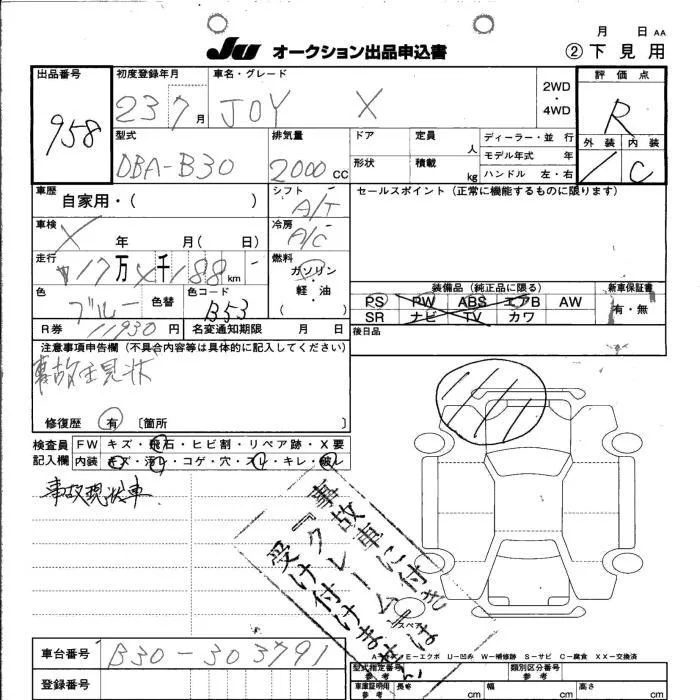 月 日 AA
JU オークション出品申込書
② 下見用
出品番号
958
初度登録年月
23 7 月
車名・グレード
JOY X
2WD
・
4WD
評価点
R
外装 内装
/ C
型式
DBA-B30
排気量
2000 CC
ドア
定員
人
形状
積載
kg
ディーラー・並 行
モデル年式 年
ハンドル 左・右
車歴
自家用・( )
シフト
A/T
セールスポイント(正常に機能するものに限ります)
車検
X 年 月( 日)
冷房
A/C
走行
万 千 188 km
燃料
ガソリン
・
軽・油
( )
色
ブルー
色替
色コード
B53
装備品(純正品に限る)
PS PW ABS エアB AW
SR ナビ TV カワ
新車保証書
有・無
R券 11930 円
名変通知期限 月 日
後日品
注意事項申告欄(不具合内容等は具体的に記入してください)
事故 現状
修復歴 有 〔箇所 〕
検査員
記入欄
FW キズ・飛石・ヒビ割・リペア跡・X要
内装 キズ・汚レ・コゲ・穴・スレ・キレ・破レ
事故現状車
事故車に付き
『クレーム』は
受け付けません
スペア
A…キズ E…エクボ U…凹み W…補修跡 S…サビ C…腐食 XX…交換済
車台番号
B30-303791
登録番号
型式指定番号
参考
類別区分番号
参考
車庫証明用
参考
長さ
cm
幅
cm
高さ
cm